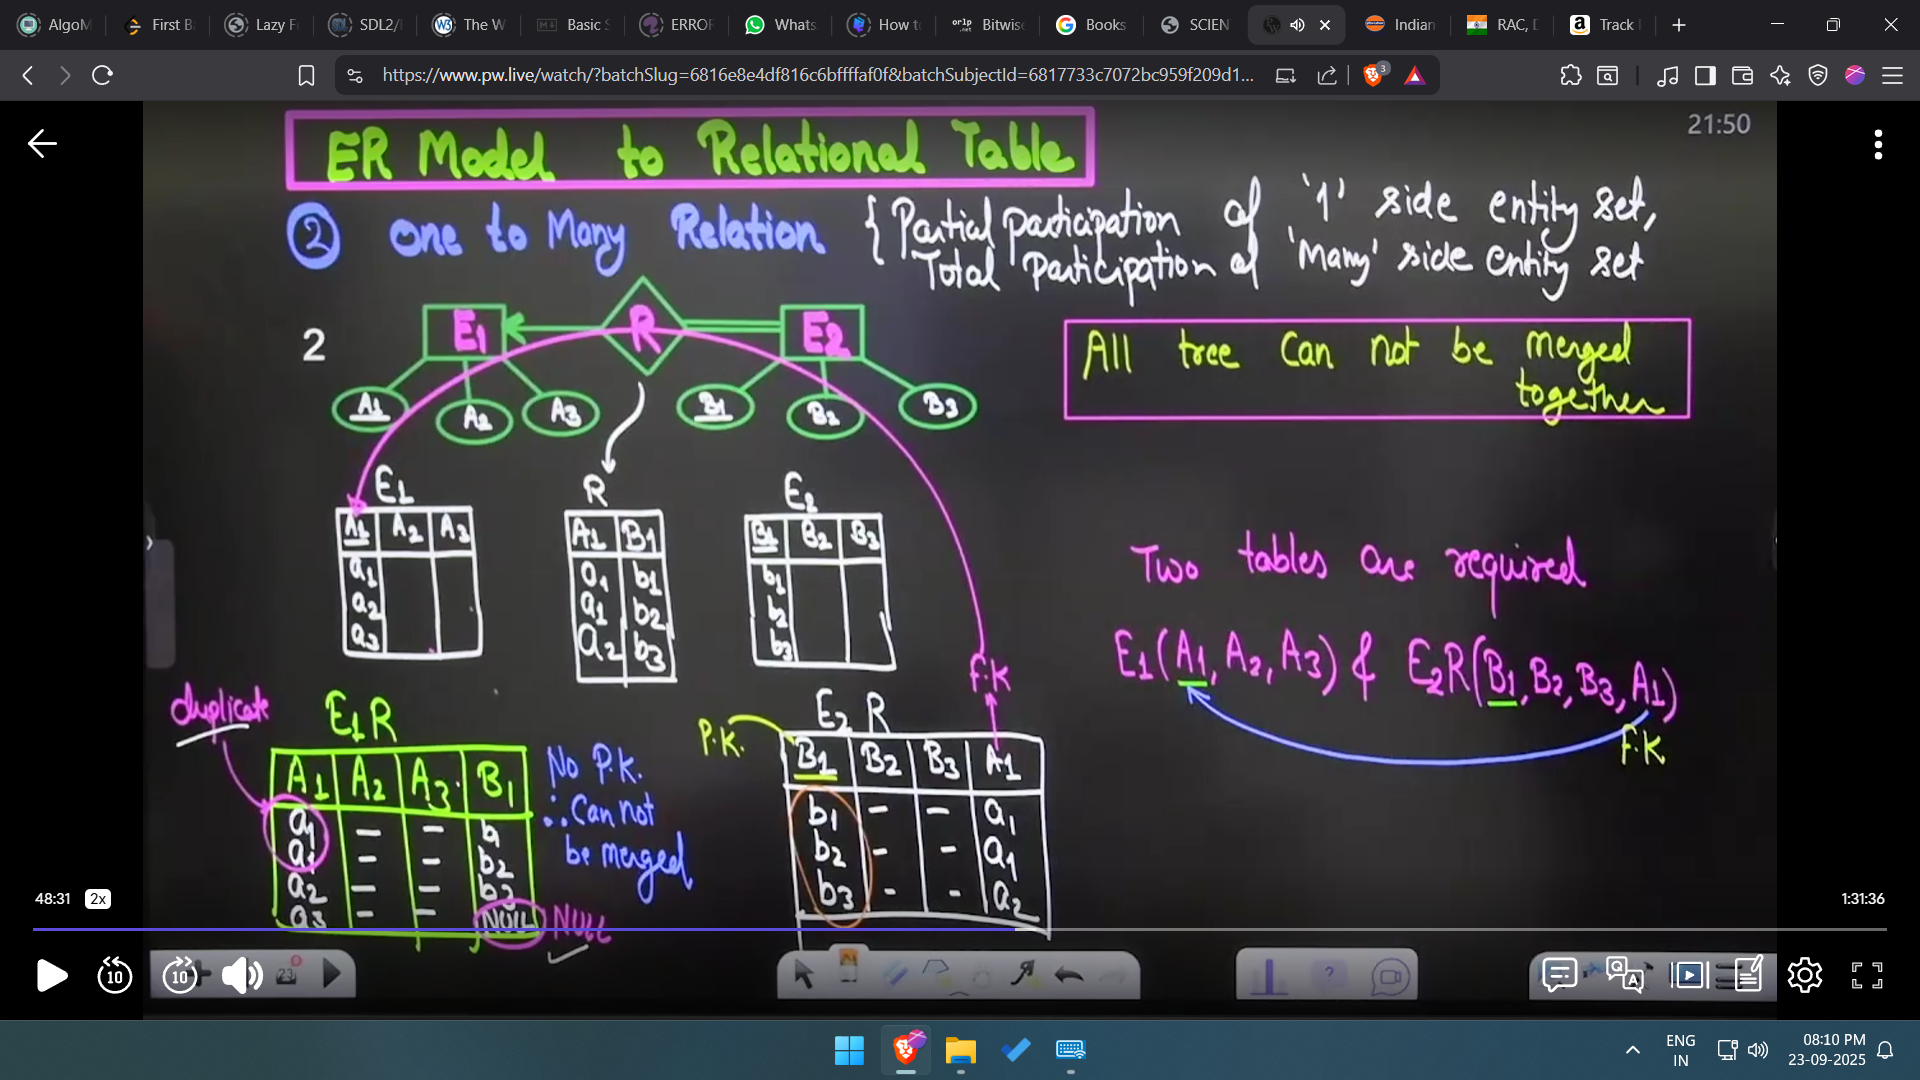 AlgoM
First B
Lazy F
SDL2/
The W
Basic S
ERROR
Whats
How to
Bitwise
Books
SCIEN
Indian
RAC, D
Track
https://www.pw.live/watch/?batchSlug=6816e8e4df816c6bffffaf0f&batchSubjectId=6817733c7072bc959f209d1...
3
21:50
ER Model to Relational Table
② one to Many Relation { Partial participation of '1' side entity set,
Total participation of 'Many' side entity set
2
E1 R E2
A1 A2 A3 B1 B2 B3
All tree can not be merged
together
E1 R E2
A1 A2 A3 A1 B1 B1 B2 B3
a1 a1 b1 b1
a2 a1 b2 b2
a3 a2 b3 b3
Two tables are required
E1(A1, A2, A3) & E2R(B1, B2, B3, A1)
F.K
F.K
duplicate
E1R
A1 A2 A3 B1
a1 - -
a1 - - b2
a2 - -
a3 - - NULL NULL
No P.K.
∴ Can not
be merged
P.K.
E2 R
B1 B2 B3 A1
b1 - - a1
b2 - - a1
b3 - - a2
48:31
2x
1:31:36
10
10
23
ENG
IN
08:10 PM
23-09-2025